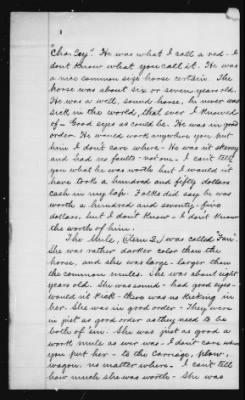 "Charley". He was what I call a red - I
dont know what you call it. He was
a nice common size horse certain. The
horse was about six or seven years old.
He was a well, sound horse, he never was
sick in the world, that ever I knowed
of - Good eyes as could be. He was in good
order. He would work anywhere you put
him I don't care where - He was not skeery
and had no faults - not one. I can't tell
you what he was worth but I would not
have took a hundred and fifty dollars
cash in my hap. Folks did say he was
worth a hundred and seventy-five
dollars, but I don't know - I don't know
the worth of him.
The Mule, (Item 2.) was called "Fan".
She was rather darker color than the
horse, and she was large - larger than
the common mules. She was about eight
years old. She was sound - had good eyes -
would not kick - there was no kicking in
her. She was in good order - They were
in just as good order as they need to be
both of em. She was just as good a
work mule as ever was - I don't care where
you put her - to the carriage, plow,
wagon, no matter where. I can't tell
how much she was worth - She was